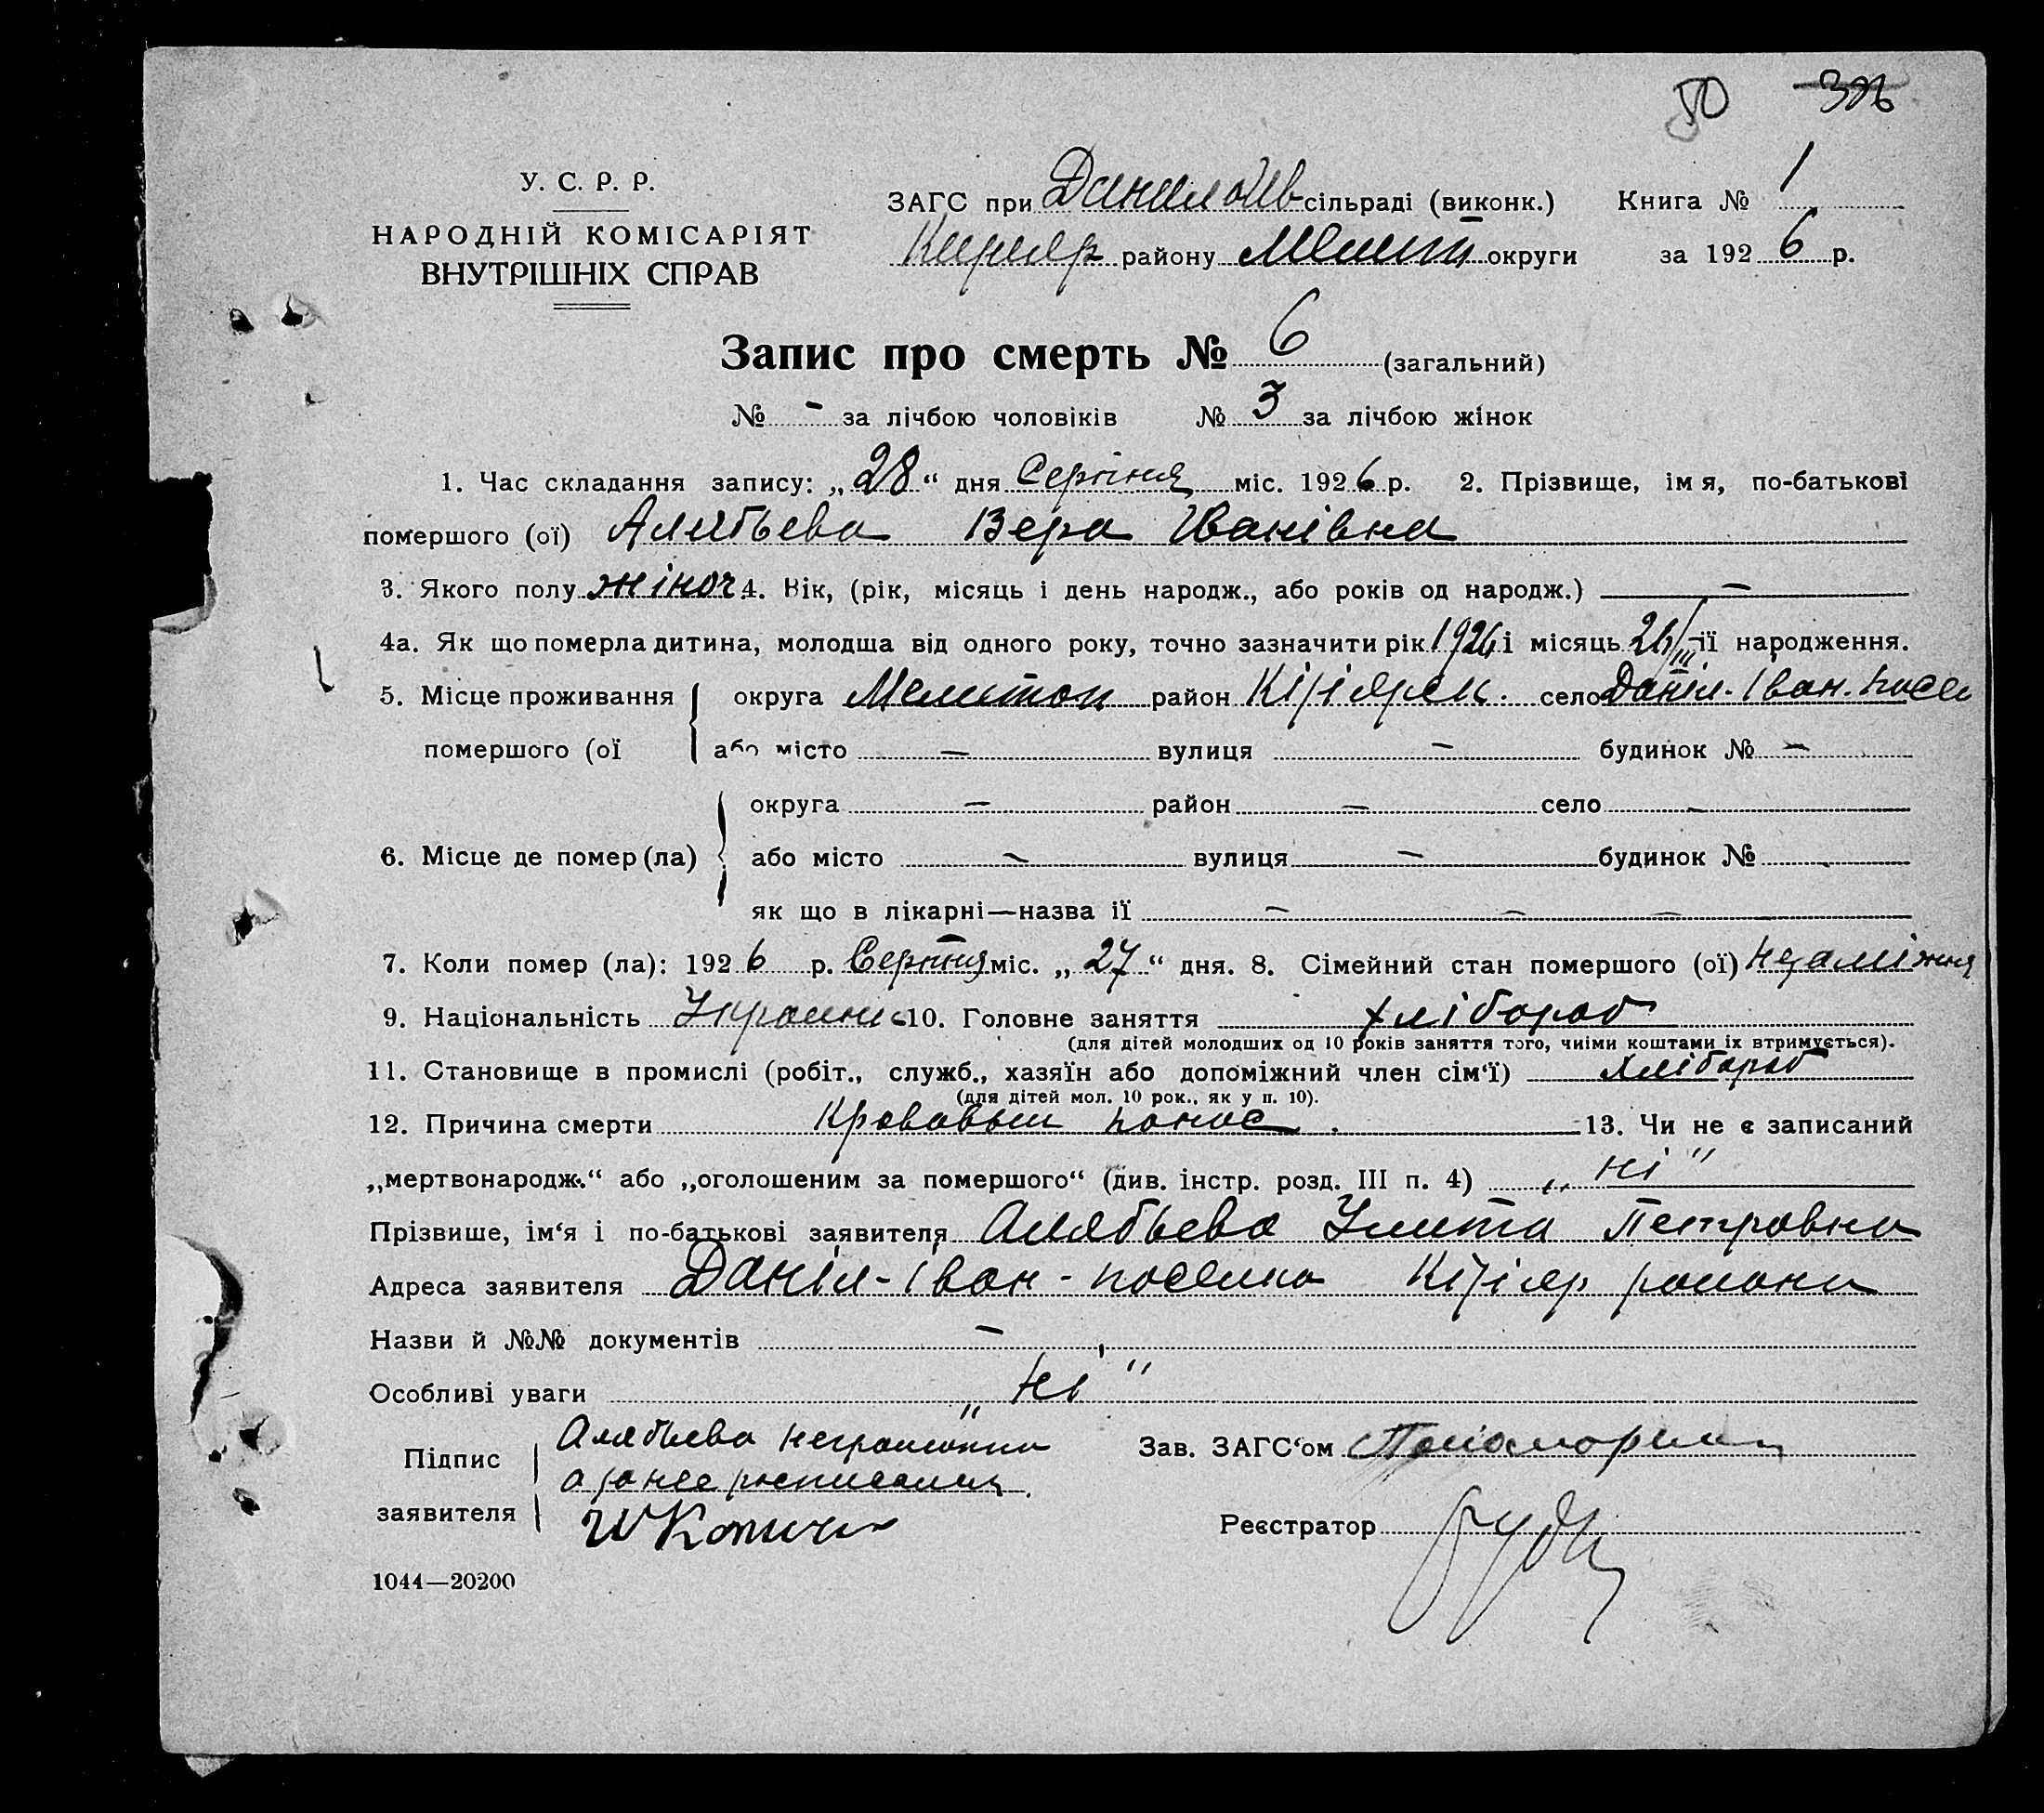 50 306
У. С. Р. Р.
НАРОДНІЙ КОМІСАРІЯТ
ВНУТРІШНІХ СПРАВ
ЗАГС при Данило Ив сільраді (виконк.) Книга № 1
району Меліт округи за 1926 р.
Запис про смерть № 6 (загальний)
№ - за лічбою чоловіків № 3 за лічбою жінок
1. Час складання запису: „28“ дня Серпня міс. 1926 р. 2. Прізвище, імя, по-батькові
помершого (ої) Алябьева Вера Иванівна
3. Якого полу жіноч 4. Вік, (рік, місяць і день народж., або років од народж.) —
4а. Як що померла дитина, молодша від одного року, точно зазначити рік 1926 і місяць 26/III її народження.
5. Місце проживання округа Мелитоп район Кізіярск. село Даніл-Іван. посел
помершого (ої або місто — вулиця — будинок № —
округа — район — село —
6. Місце де помер (ла) або місто — вулиця — будинок № -
як що в лікарні—назва її — — —
7. Коли помер (ла): 1926 р. Серпня міс. „27“ дня. 8. Сімейний стан помершого (ої) незаміжня
9. Національність Украинс 10. Головне заняття хлібороб
(для дітей молодших од 10 років заняття того, чиїми коштами їх втримується).
11. Становище в промислі (робіт., служб., хазяїн або допоміжний член сім‘ї) хлібороб
(для дітей мол. 10 рок., як у п. 10).
12. Причина смерти Кровавый понос. 13. Чи не є записаний
„мертвонародж.“ або „оголошеним за помершого“ (див. інстр. розд. III п. 4) „ні"
Прізвише, ім‘я і по-батькові заявителя Алябьева Улита Петровна
Адреса заявителя Даніл-Іван-поселка Кізіяр района
Назви й №№ документів —
Особливі уваги „ні"
Підпис
заявителя
Алябьева неграмотна
а за нее росписался
Зав. ЗАГС‘ом
Реєстратор
1044—20200